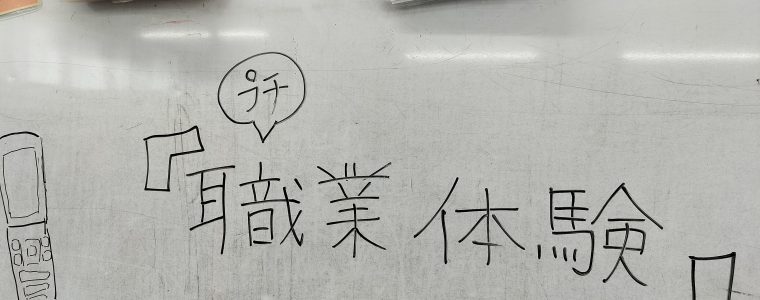 プチ
『職業体験』